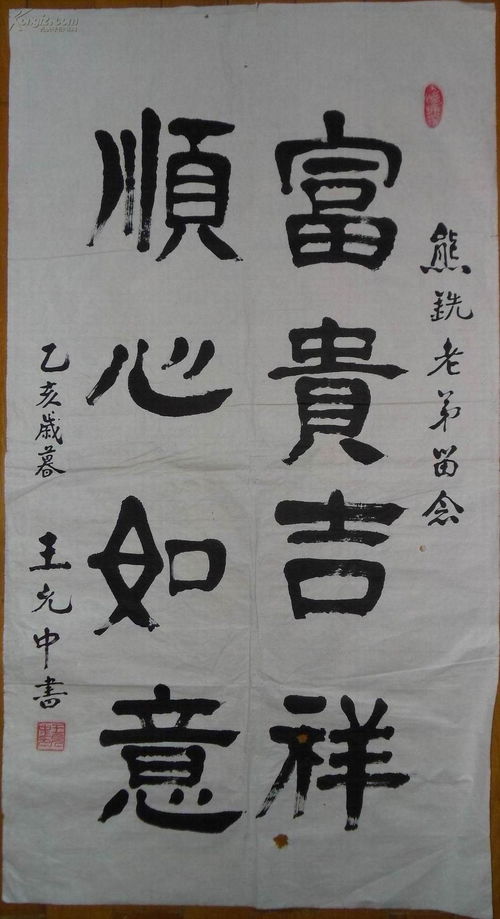 熊銑老弟留念
富貴吉祥
順心如意
乙亥歲暮
王允中書